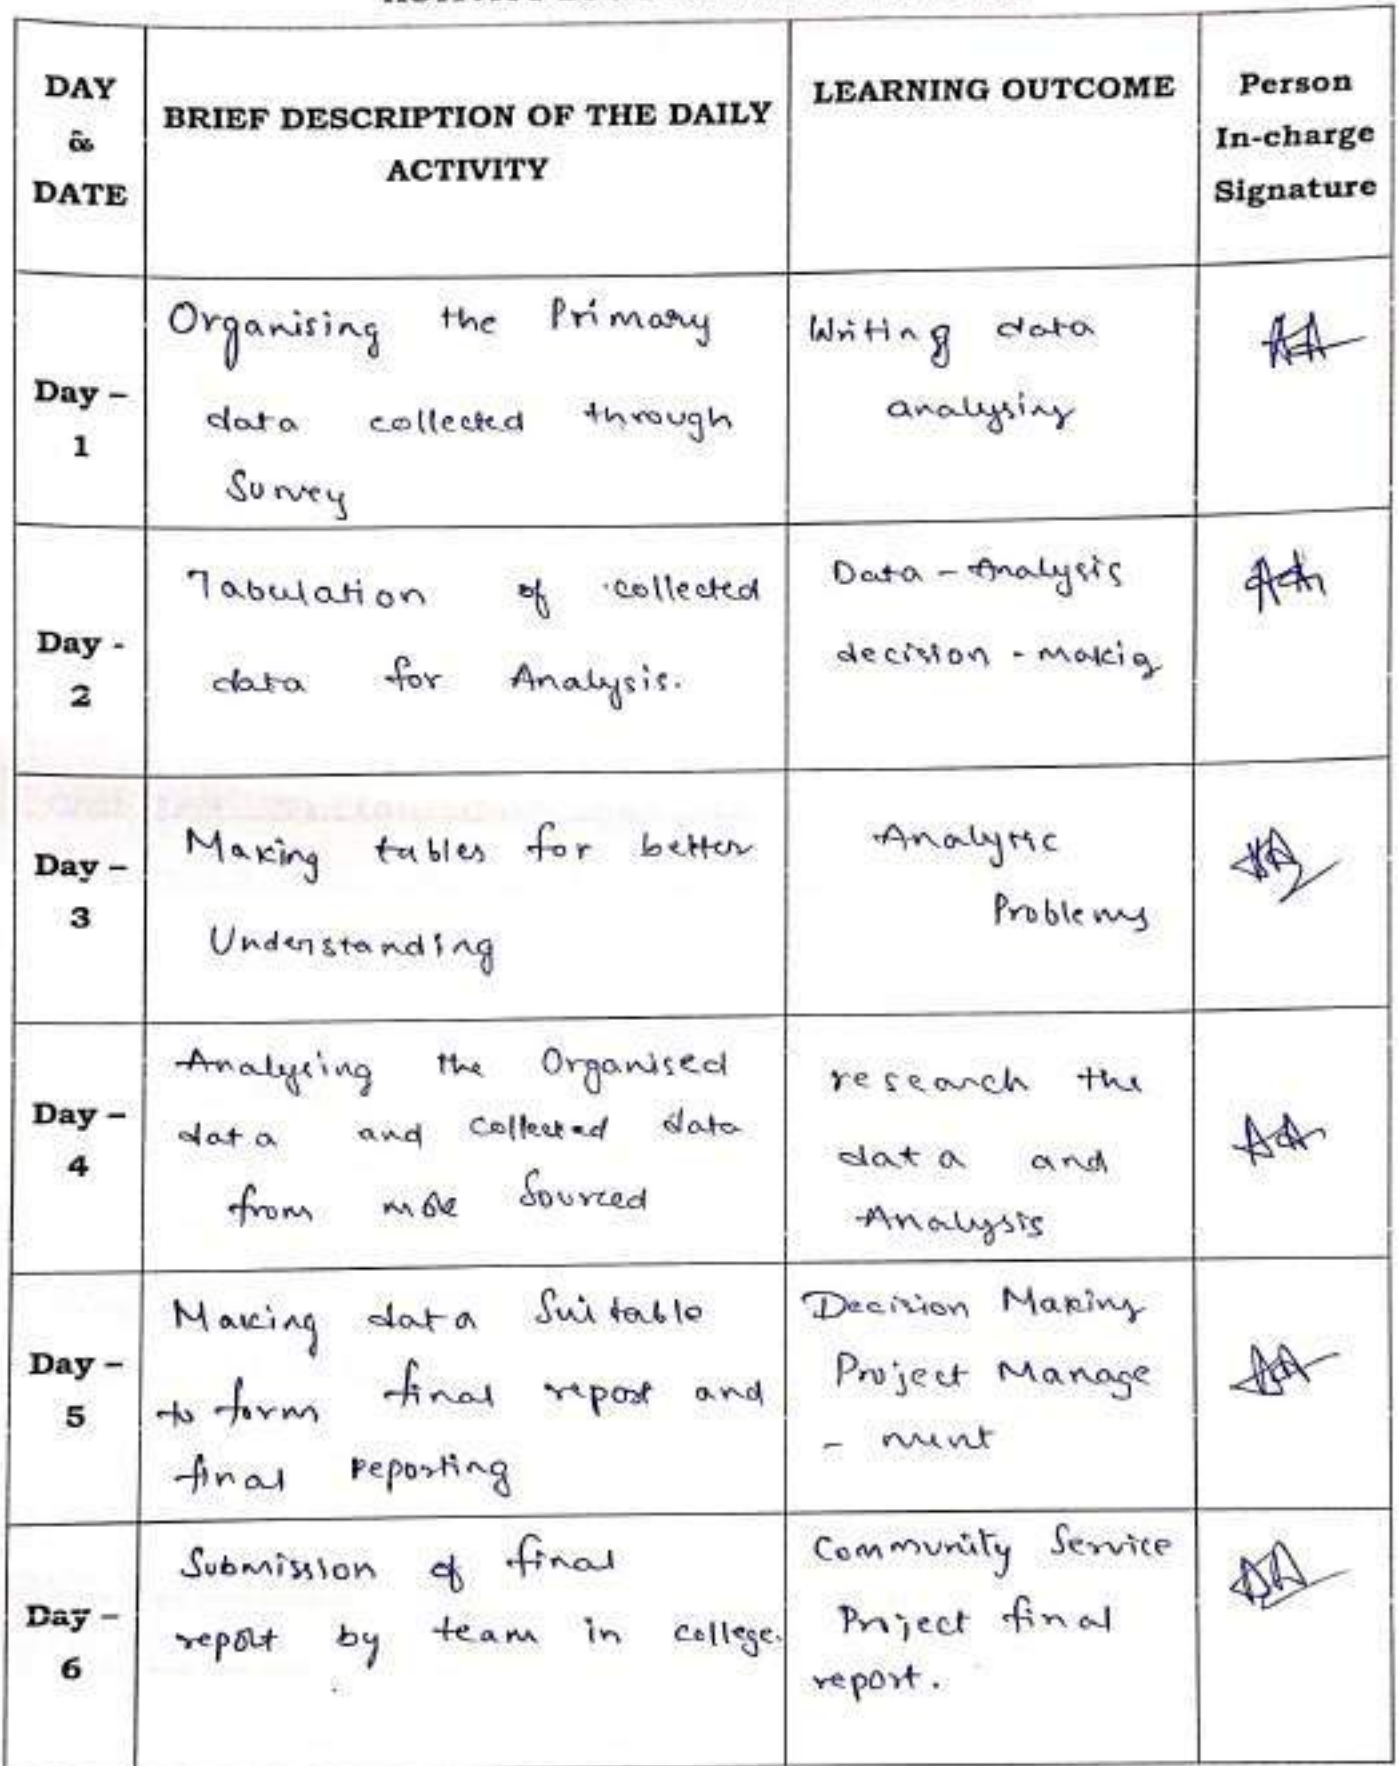 DAY
&
DATE
BRIEF DESCRIPTION OF THE DAILY
ACTIVITY
LEARNING OUTCOME
Person
In-charge
Signature
Day –
1
Organising the Primary
data collected through
Survey
Writing data
analysing
Day -
2
Tabulation of collected
data for Analysis.
Data - Analysis
decision - makig
Day –
3
Making tables for better
Understanding
Analytic
Problems
Day –
4
Analysing the Organised
data and collected data
from more Sourced
research the
data and
Analysis
Day –
5
Making data Suitable
to form final report and
final reporting
Decision Making
Project Manage
- ment
Day –
6
Submission of final
report by team in college.
Community Service
Project final
report.